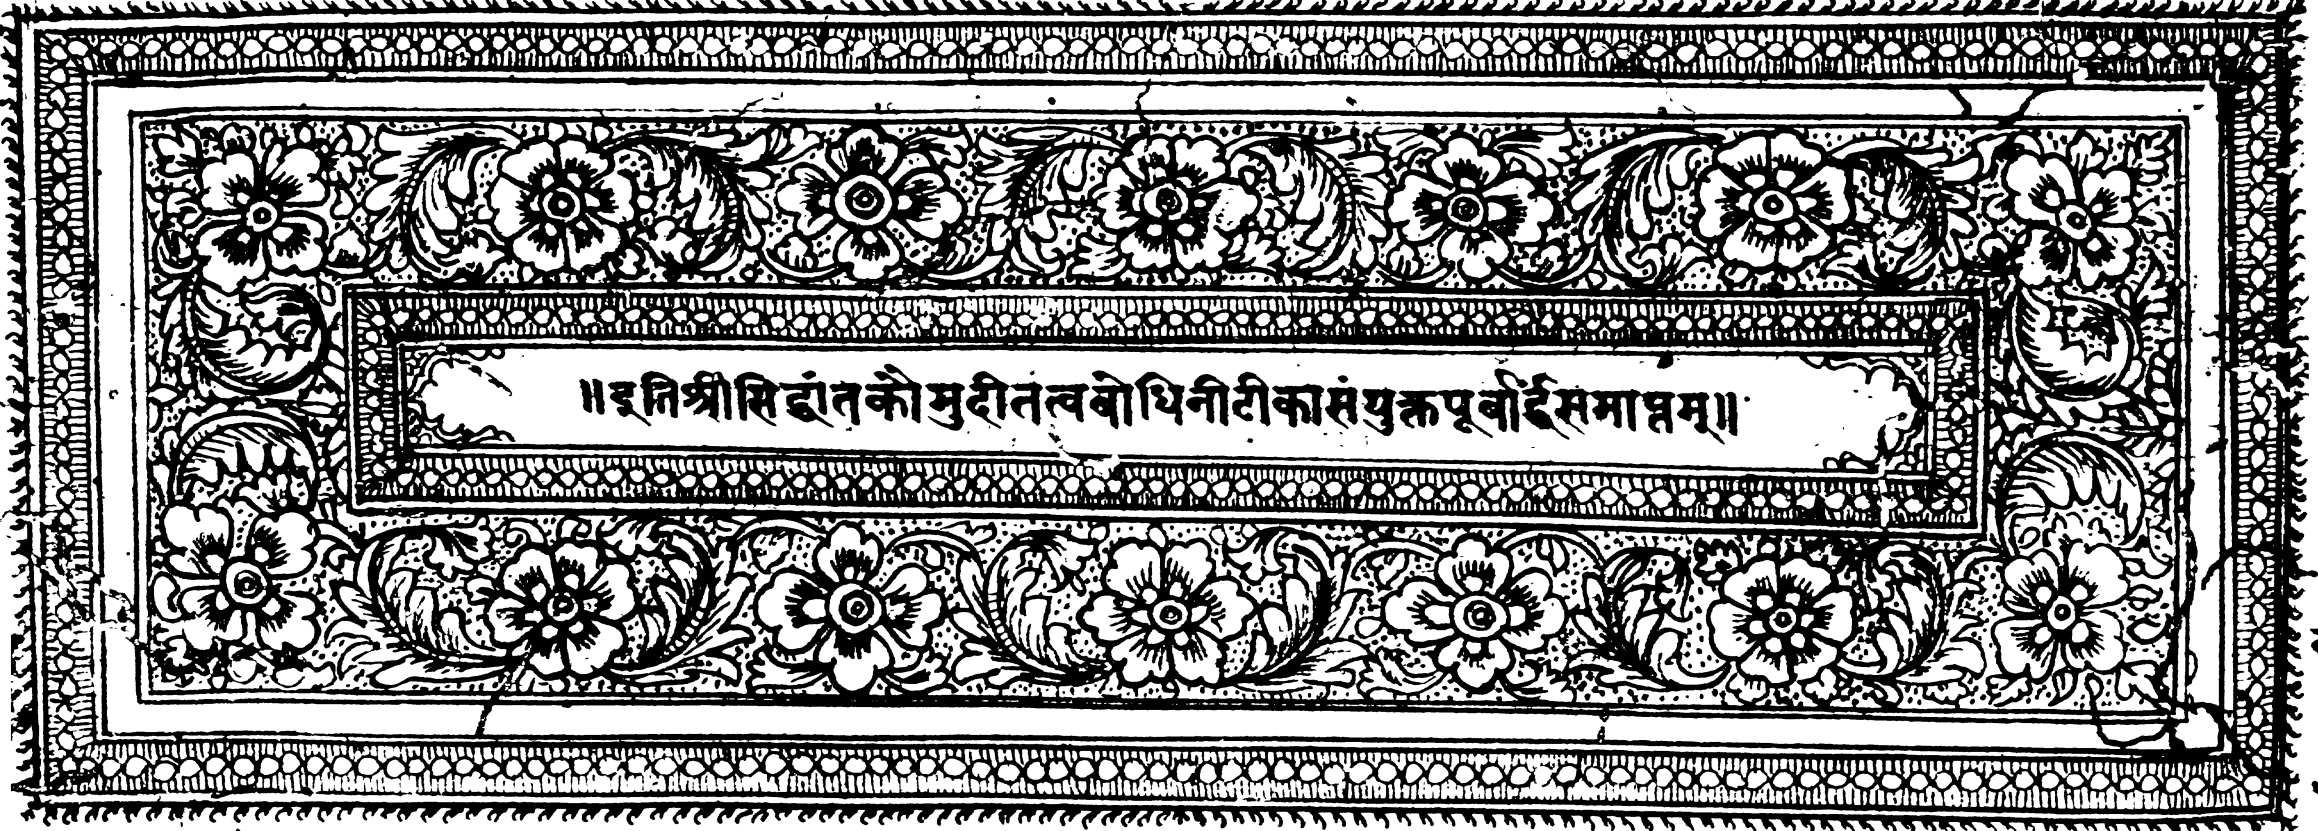 ॥इतिश्रीसिद्धांतकौमुदीतत्वबोधिनीटीकासंयुक्तपूर्वार्द्धसमाप्तम्॥